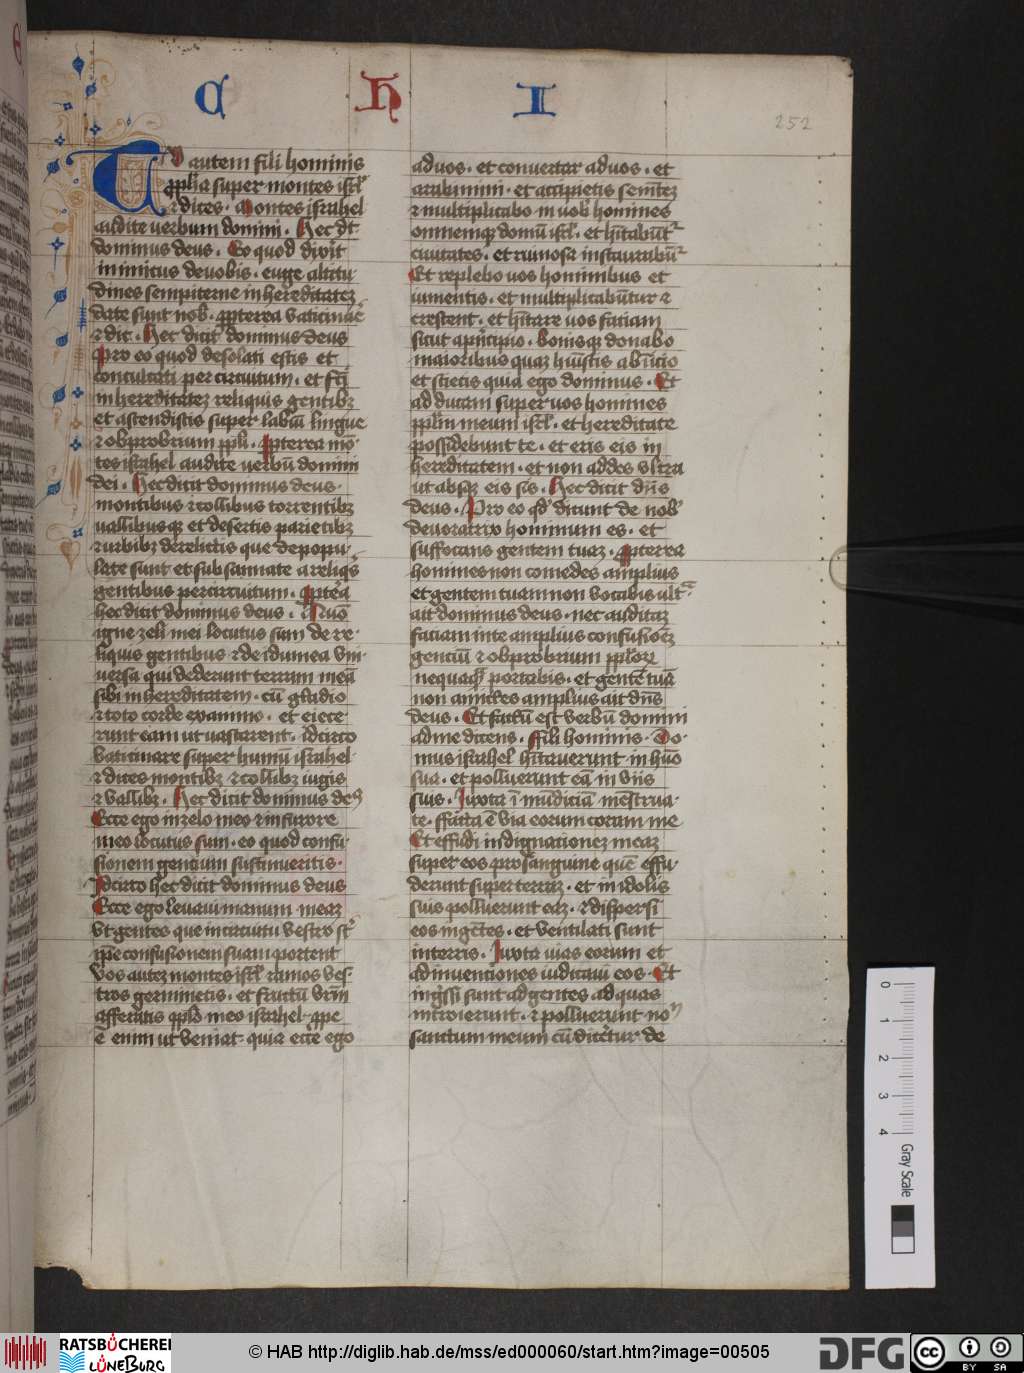 C H I
252
Tu autem fili hominis
ꝓph̄a super montes isrl̄
⁊ dices · Montes israhel
audite verbum domini · Hec dt̄
dominus deus · Eo quod dixit
inimicus de vobis · euge altitu
dines sempiterne in hereditatez
date sunt nob̄ · ꝓpterea vaticinar̄e
⁊ dic · Hec dicit dominus deus
Pro eo quod desolati estis et
conculcati per circuitum · et fc̄i
in hereditatez reliquis gentibꝫ
et ascendistis super labiū lingue
⁊ obprobrium ppl̄i · ꝓpterea mō
tes israhel audite verbū domini
dei · Hec dicit dominus deus ·
montibus ⁊ collibus torrentibꝫ
vallibusqꝫ et desertis parietibꝫ
⁊ urbibꝫ derelictis que depopu
late sunt et subsannate a reliqis
gentibus per circuitum · ꝓptea
hec dicit dominus deus · Quō
igne zeli mei locutus sum de re
liquis gentibus ⁊ de idumea vni
versa qui dederunt terram meā
sibi in hereditatem · cū gladio
⁊ toto corde ex animo · et eiece
runt eam ut vastarent · idcirco
vaticinare super humū israhel ·
⁊ dices montibꝫ ⁊ collibꝫ iugis
⁊ vallibꝫ · Hec dicit dominus deꝰ
Ecce ego in zelo meo ⁊ in furore
meo locutus sum · eo quod confu
sionem gentium sustinueritis ·
Idcirco hec dicit dominus deus
Ecce ego levavi manum meaz
vt gentes que in circuitu vestro st̄
ip̄e confusionem suam portent
vos autez montes isrl̄ ramos ves
tros germinetis · et fructū vrm̄
afferatis ppl̄o meo israhel · ꝓpe
ē enim ut veniat · quia ecce ego
ad vos · et convertar ad vos · et
arabimini · et accipietis semētez
⁊ multiplicabo in vob̄ homines
omnemqꝫ domū isrl̄ · et hītabūt̄
civitates · et ruinosa instaurabūt̄
Et replebo vos hominibus et
iumentis · et multiplicabūtur ⁊
crescent · et hītare vos faciam
sicut a pn̄cipio · bonisqꝫ donabo
maioribus quaz huīstis ab īicio
et scietis quia ego dominus · Et
adducam super vos homines
ppl̄m meum isrl̄ · et hereditate
possidebunt te · et eris eis in
hereditatem · et non addes vltra
ut absqꝫ eis sis · Hec dicit dn̄s
deus · Pro eo qd̄ dicunt de nob̄
devoratrix hominum es · et
suffocans gentem tuaz · ꝓpterea
homines non comedes amplius
et gentem tuam non vocabis ultᵃ
ait dominus deus · nec auditaz
faciam in te amplius confusiōez
gentiū ⁊ obprobrium ppl̄oꝝ
nequaqᵃ portabis · et gentē tuā
non amittes amplius ait dn̄s
deus · Et factū est verbū domini
ad me dicens · ffili hominis · Do
mus israhel hītaverunt in hūo
sua · et polluerunt eā in viis
suis · Iuxta īmūdiciā mēstrua
te · ffacta ē via eorum coram me
Et effudi indignationez meaz
super eos pro sanguine quē effu
derunt super terraz · et in idolis
suis polluerunt eaz · ⁊ dispersi
eos in gētes · et ventilati sunt
in terris · Iuxta vias eorum et
adinventiones iudicavi eos · Et
ingssi sunt ad gentes ad quas
introierunt · ⁊ polluerunt noᵐ
sanctum meum cū dicētur de
0
1
2
3
4
Gray Scale
RATSBÜCHEREI
LÜNEBURG
© HAB http://diglib.hab.de/mss/ed000060/start.htm?image=00505
DFG
cc BY SA